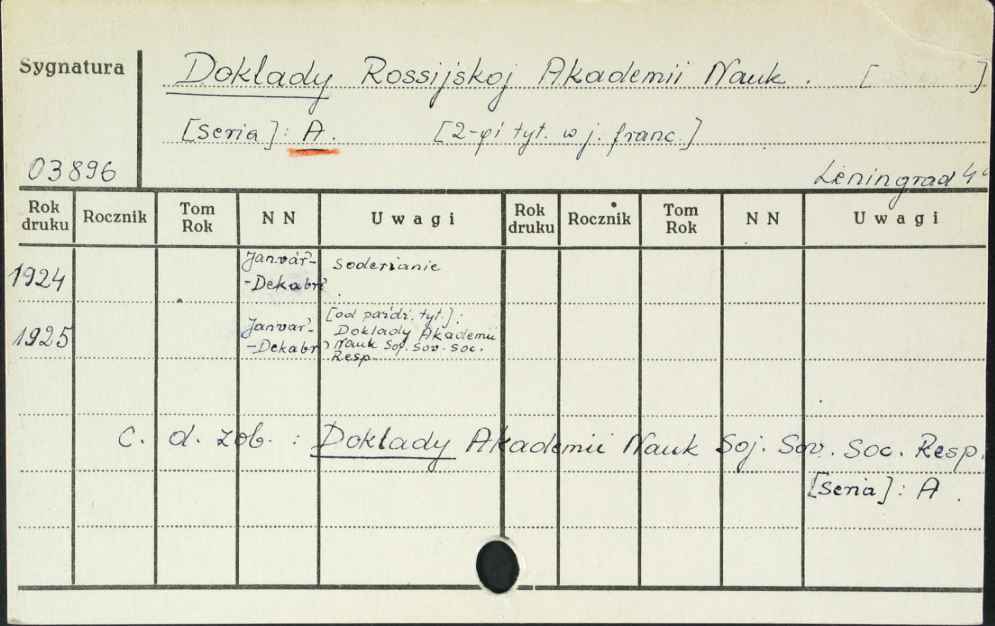 Sygnatura
Dokłady Rossijskoj Akademii Nauk. [ ]
[Seria]: A. [2-gi tyt. w j. franc.]
03896
Leningrad 4°
Rok druku Rocznik Tom Rok NN Uwagi Rok druku Rocznik Tom Rok NN Uwagi
1924 Janvar'-
-Dekabr' soderžanie
1925 Janvar'-
-Dekabr' [od paźdz. tyt.]:
Doklady Akademii
Nauk Soj. Sov. Soc.
Resp.
C. d. zob. : Doklady Akademii Nauk Soj. Sov. Soc. Resp.
[Seria]: A.